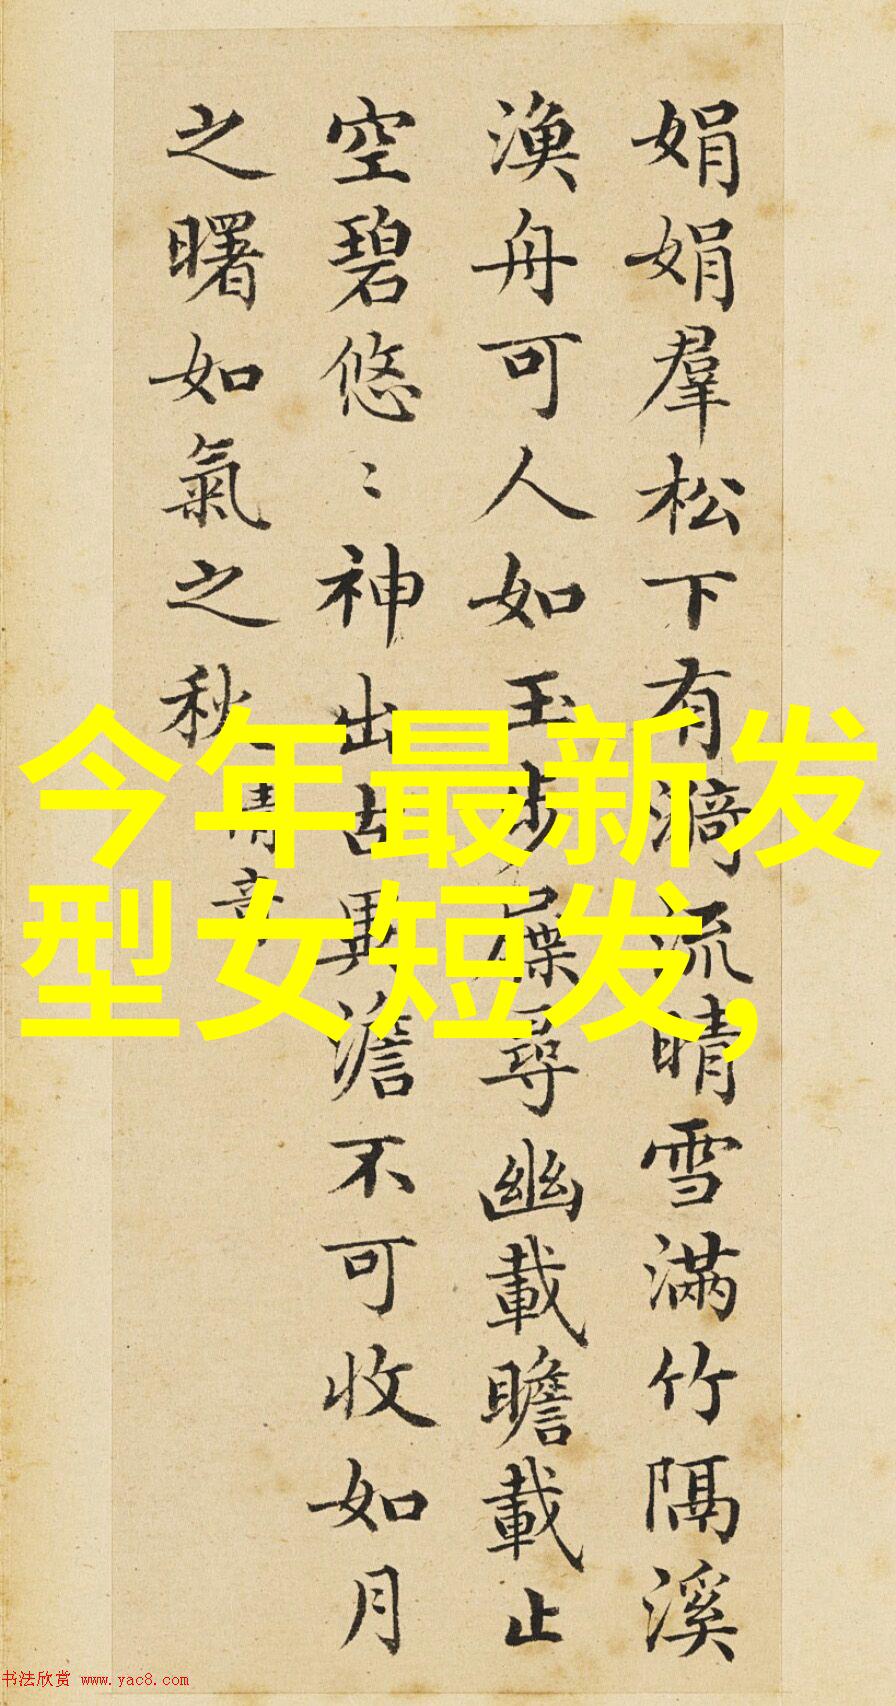 娟娟羣松下有漪流晴雪滿竹隔溪
漁舟可人如玉步屧尋幽載瞻載止
空碧悠〻神出古異澹不可收如月
之曙如氣之秋
清奇
今年最新发
型女短发,
书法欣赏 www.yac8.com